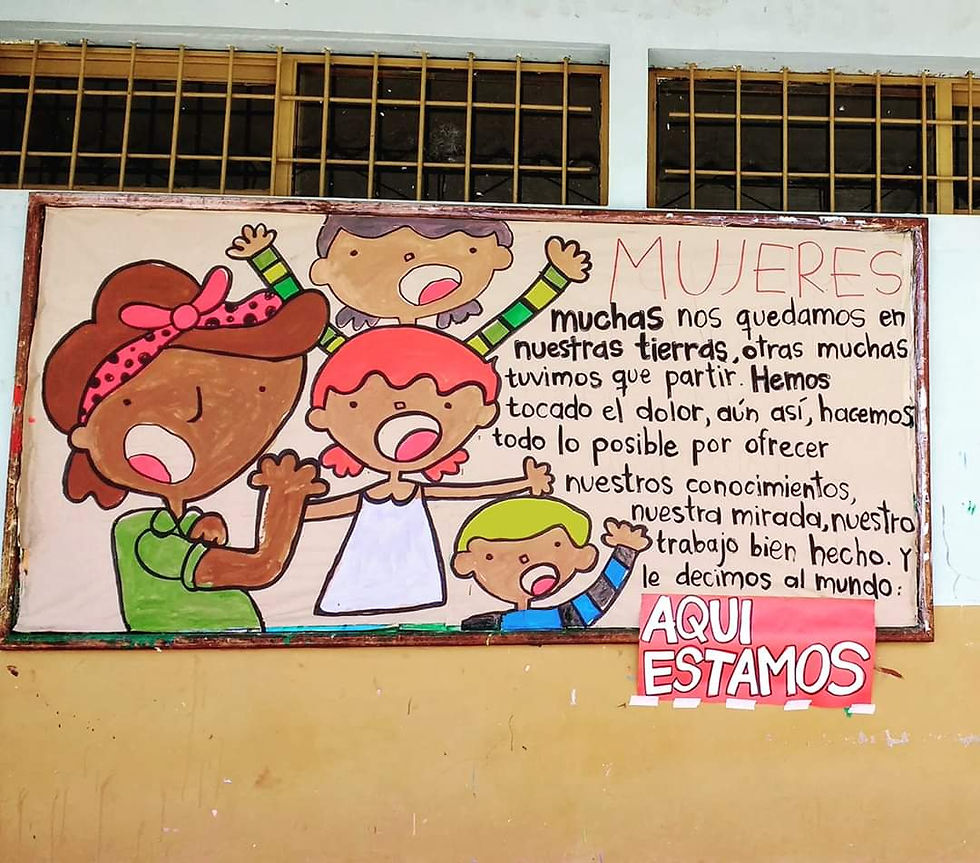 MUJERES
muchas nos quedamos en
nuestras tierras, otras muchas
tuvimos que partir. Hemos
tocado el dolor, aún así, hacemos
todo lo posible por ofrecer
nuestros conocimientos,
nuestra mirada, nuestro
trabajo bien hecho. Y
le decimos al mundo:
AQUI
ESTAMOS